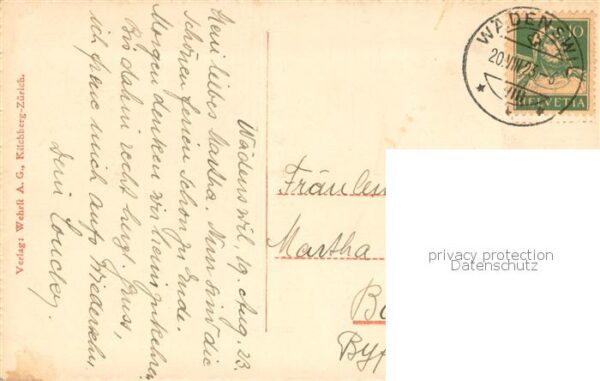 Wädenswil, 19. Aug. 23.
Mein liebes Martha. Nun sind die
schönen Ferien schon zu Ende.
Morgen denken wir heimzukehren
Bis dahin recht herzl. Gruss,
ich freue mich aufs Wiedersehn
Dein
Verlag: Wehrli A. G., Kilchberg-Zürich.
WÄDENSWIL
20.VIII.23
10
HELVETIA
Fräulein
Martha
privacy protection
Datenschutz